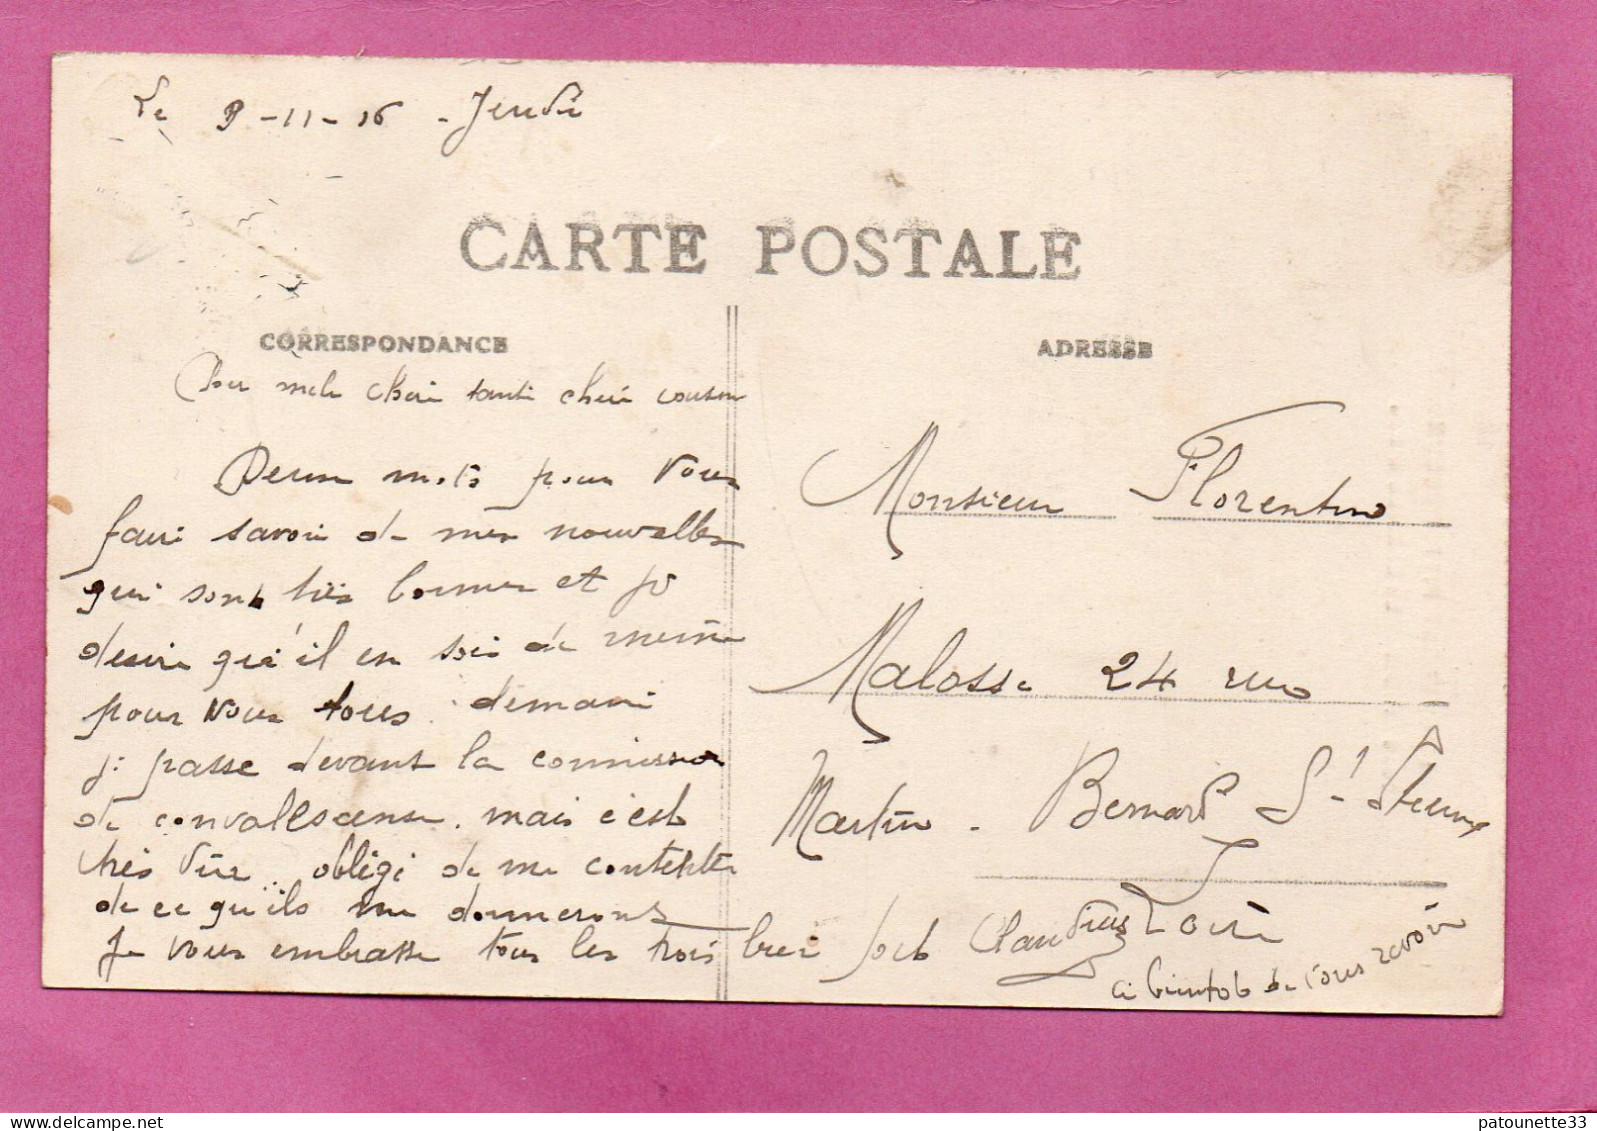 Le 9-11-16 - Jeudi
CARTE POSTALE
CORRESPONDANCE
ADRESSE
Cher chéri tanti chéri cousin
Deux mots pour vous
faire savoir de mes nouvelles
qui sont très bonnes et je
desire qu'il en sois de meme
pour vous tous. demain
je passe devant la commission
de convalescense. mais c'est
très dure. obligé de me contenter
de ce qu'ils me donnerons
Je vous embrasse tous les trois bien fort Claudius
à bientot de vous revoir
Monsieur Florentino
Malosse 24 rue
Martin - Bernard St Étienne
Loire
patounette33